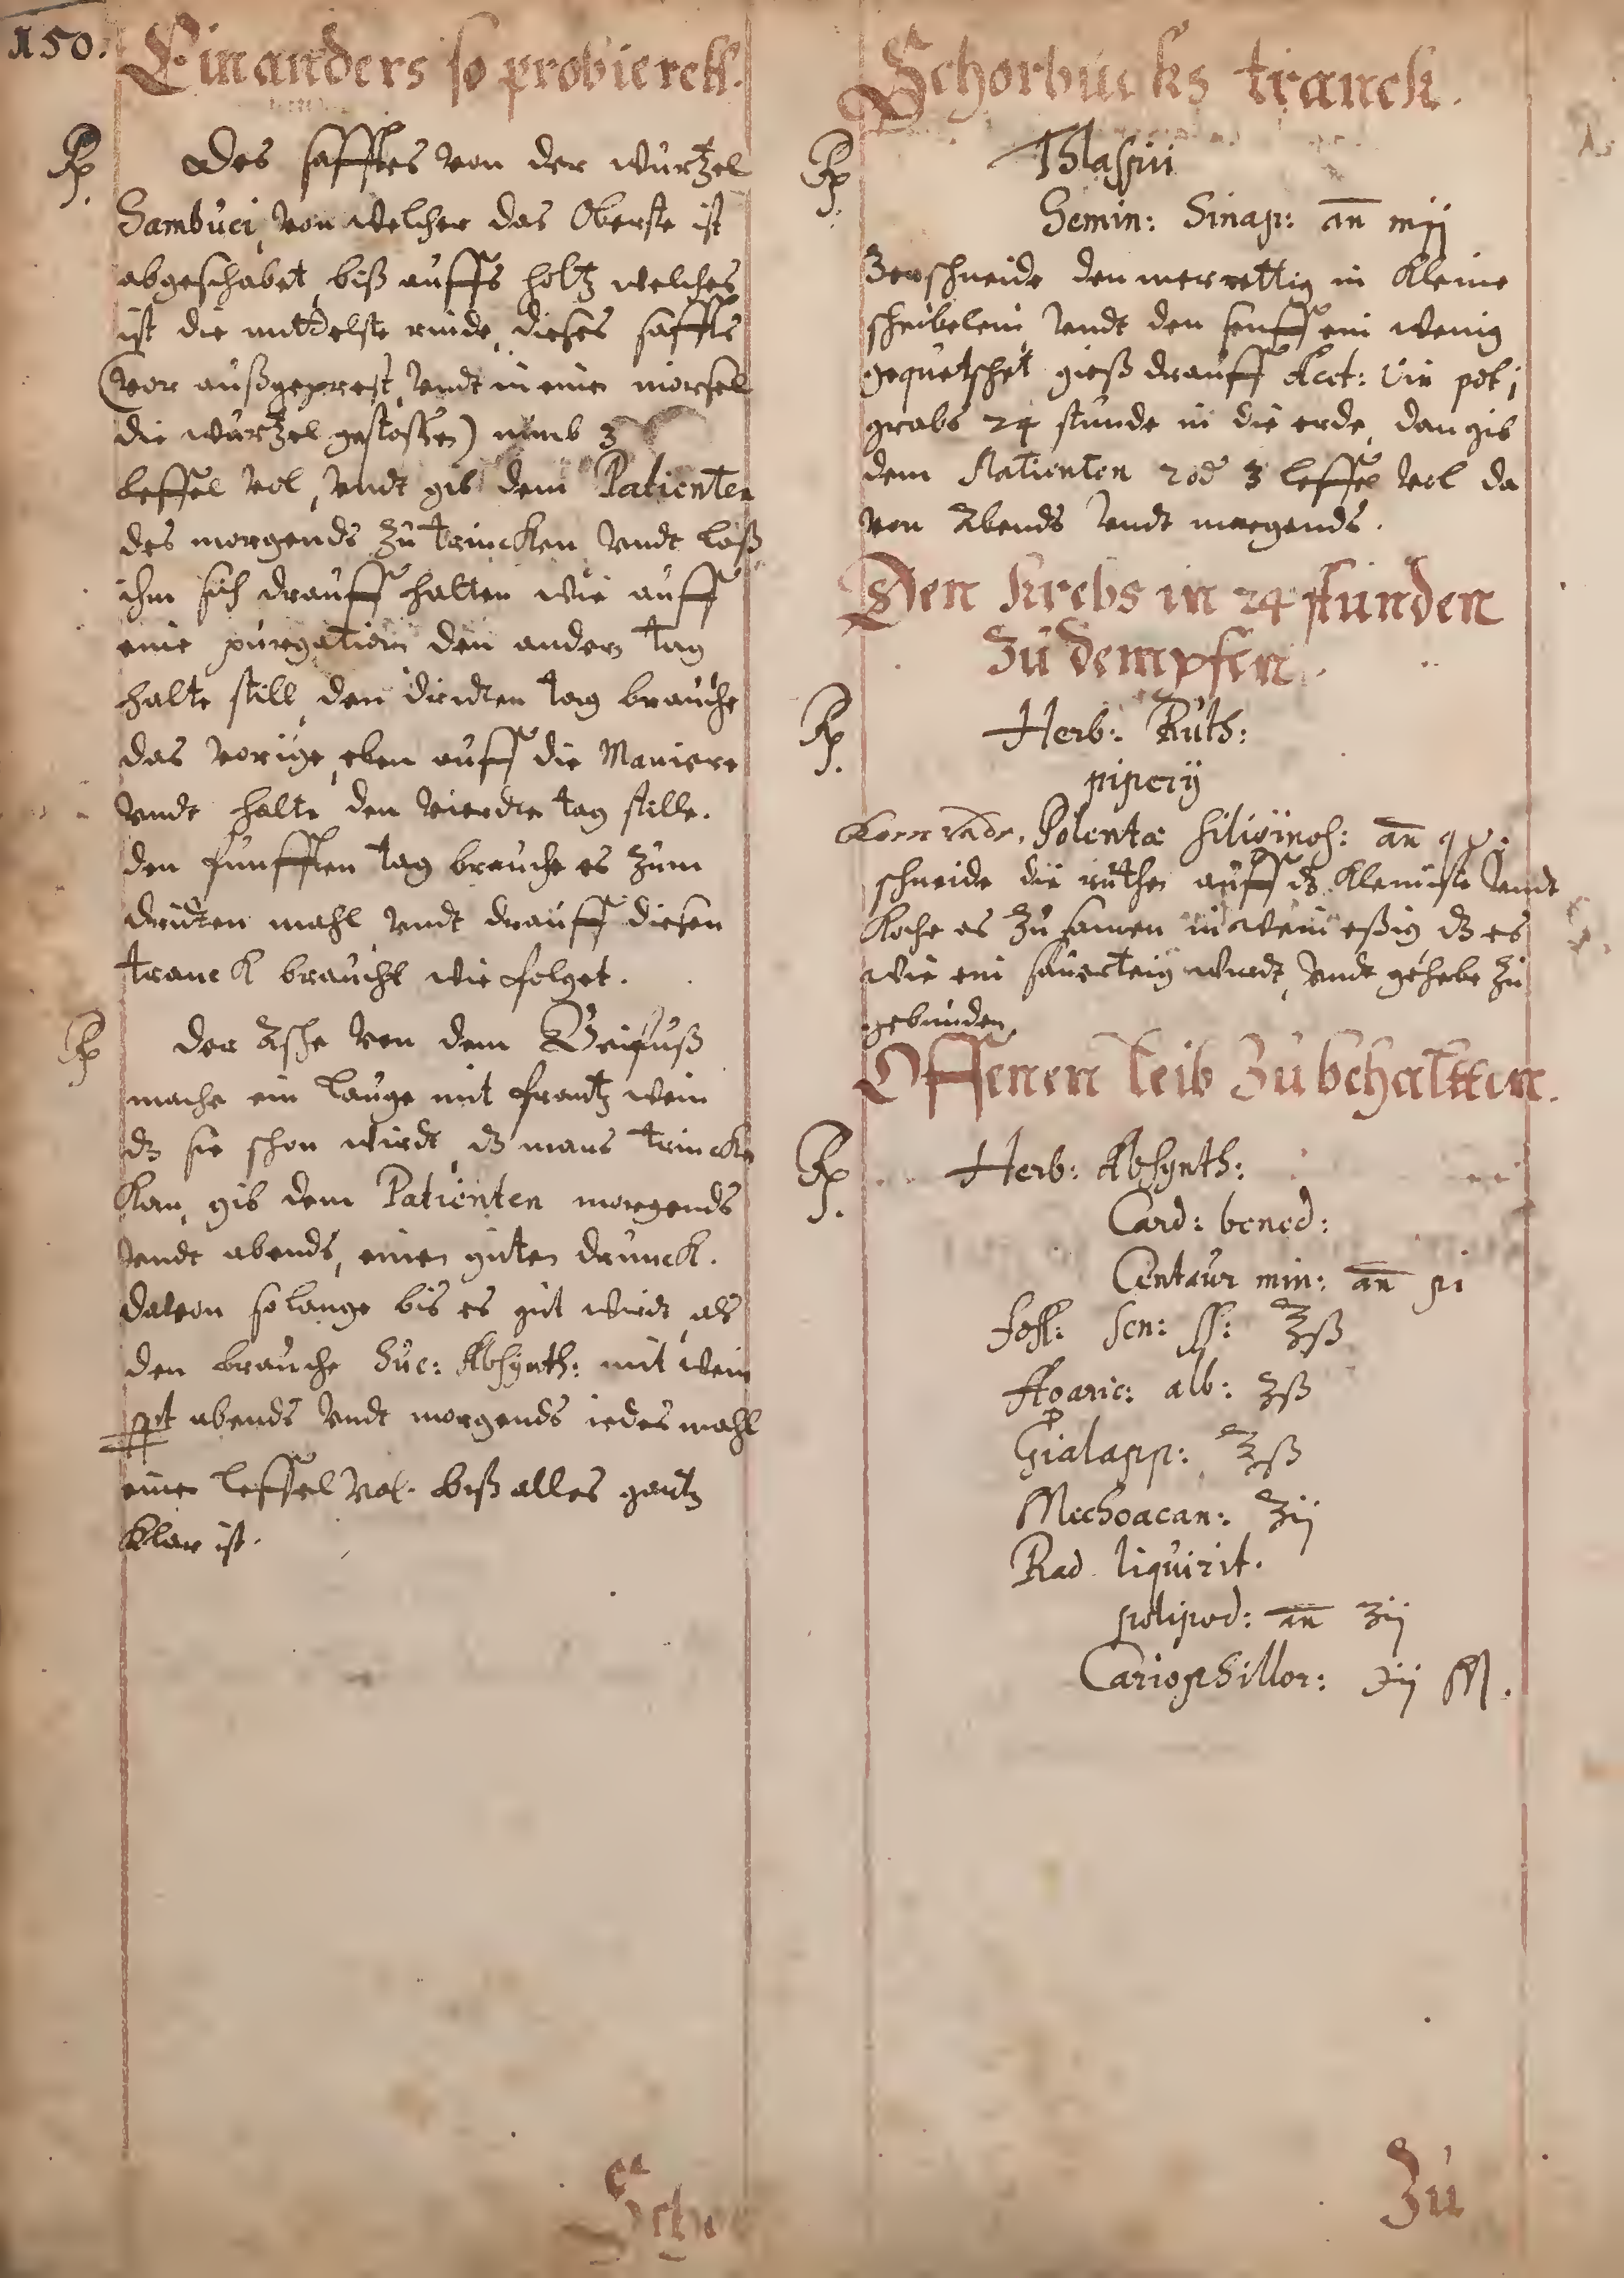 150.
Ein anders so probierett.
Rp. Des safftes von der wurtzel
Sambuci, von welcher das Oberste ist
abgeschabet, biß auffs holtz welches
ist die mittelste rinde, dieses saffts
(vor außgeprest, undt in einen mörsel
die wurtzel gestossen) nimb 3
leffel vol, undt gib dem Patienten
des morgends zu trincken undt laß
ihm sich drauff halten wie auff
eine purgation den andern tag
halte still, den dridten tag brauche
das vorige, eben auff die Maniere
undt halte den vierdten tag stille.
den funfften tag brauche es zum
dridten mahl undt drauff diesen
tranck braucht wie folget.
Rp der Asche von dem Beifuß
mache ein lauge mit frantz wein
dz sie schon wirdt, dz mans trincken
kan, gib dem Patienten morgends
undt abends, einen guten drunck.
davon so lange bis es gut wirdt, als
den brauche Suc: Absynth: mit wein
abends undt morgends iedes mahl
einen leffel vol. biß alles gantz
klar ist.
Scho
Schorbucks tranck.
Rp. Thlaspii
Semin: Sinap: an mij
Zerschneide den merrettig in kleine
scheibelein, undt den senff ein wenig
gequetschet gieß drauff Acet: Vin pot j
grabs 24 stunde in die erde, dan gib
dem Patienten 2 od 3 leffel vol da
von Abends undt morgends.
Den Krebs in 24 stunden
Zu dempfen.
Rp. Herb: Ruth:
piperij
Polentae siliginos: an q v:
schneide die ruthen auff dz kleinste undt
koche es zu samen in wein eßig, dz es
wie ein sauerteig wirdt, undt gehebe zu
gebunden,
Offenen leib zu behaltten.
Rp. Herb: Absynth:
Card: bened:
Centaur min: an pi
Foll: Sen: ss: ℥ß
Agaric: alb: ʒß
Gialapp: ℥ß
Mechoacan: ʒij
Rad liquirit.
polipod: an ʒij
Cariophillor: ℈ij M.
Zu